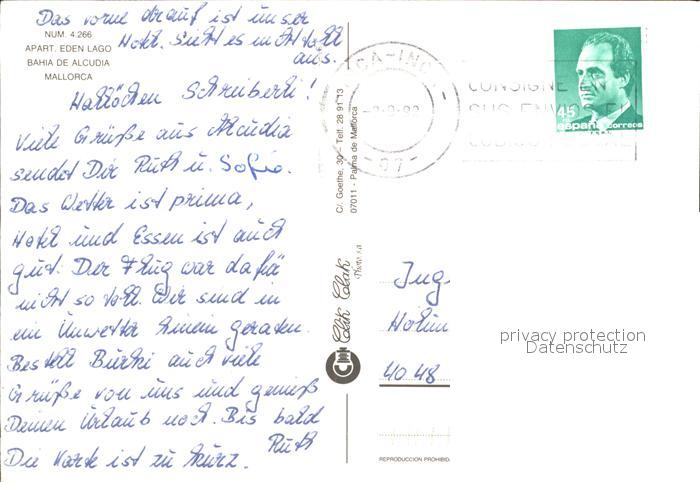 Das vorne drauf ist unser
Hotel. Sieht es nicht toll
aus.
NUM. 4.266
APART. EDEN LAGO
BAHIA DE ALCUDIA
MALLORCA
Hallöchen Schreiberli!
Viele Grüße aus Alcudia
sendet Dir Ruth u. Sofie.
Das Wetter ist prima,
Hotel und Essen ist auch
gut. Der Flug war dafür
nicht so toll. Wir sind in
ein Unwetter hinein geraten.
Bestell Burki auch viele
Grüße von uns und genieß
Deinen Urlaub noch. Bis bald
Ruth
Die Karte ist zu kurz.
C/. Goethe, 30 - Telf. 28 91 13
07011 - Palma de Mallorca
Clak Clak
CA-INC
07
CONSIGNE
SUS ENVIOS EL
CODIGO
45
españa correos
Jug
40 48
privacy protection
Datenschutz
REPRODUCCION PROHIBID